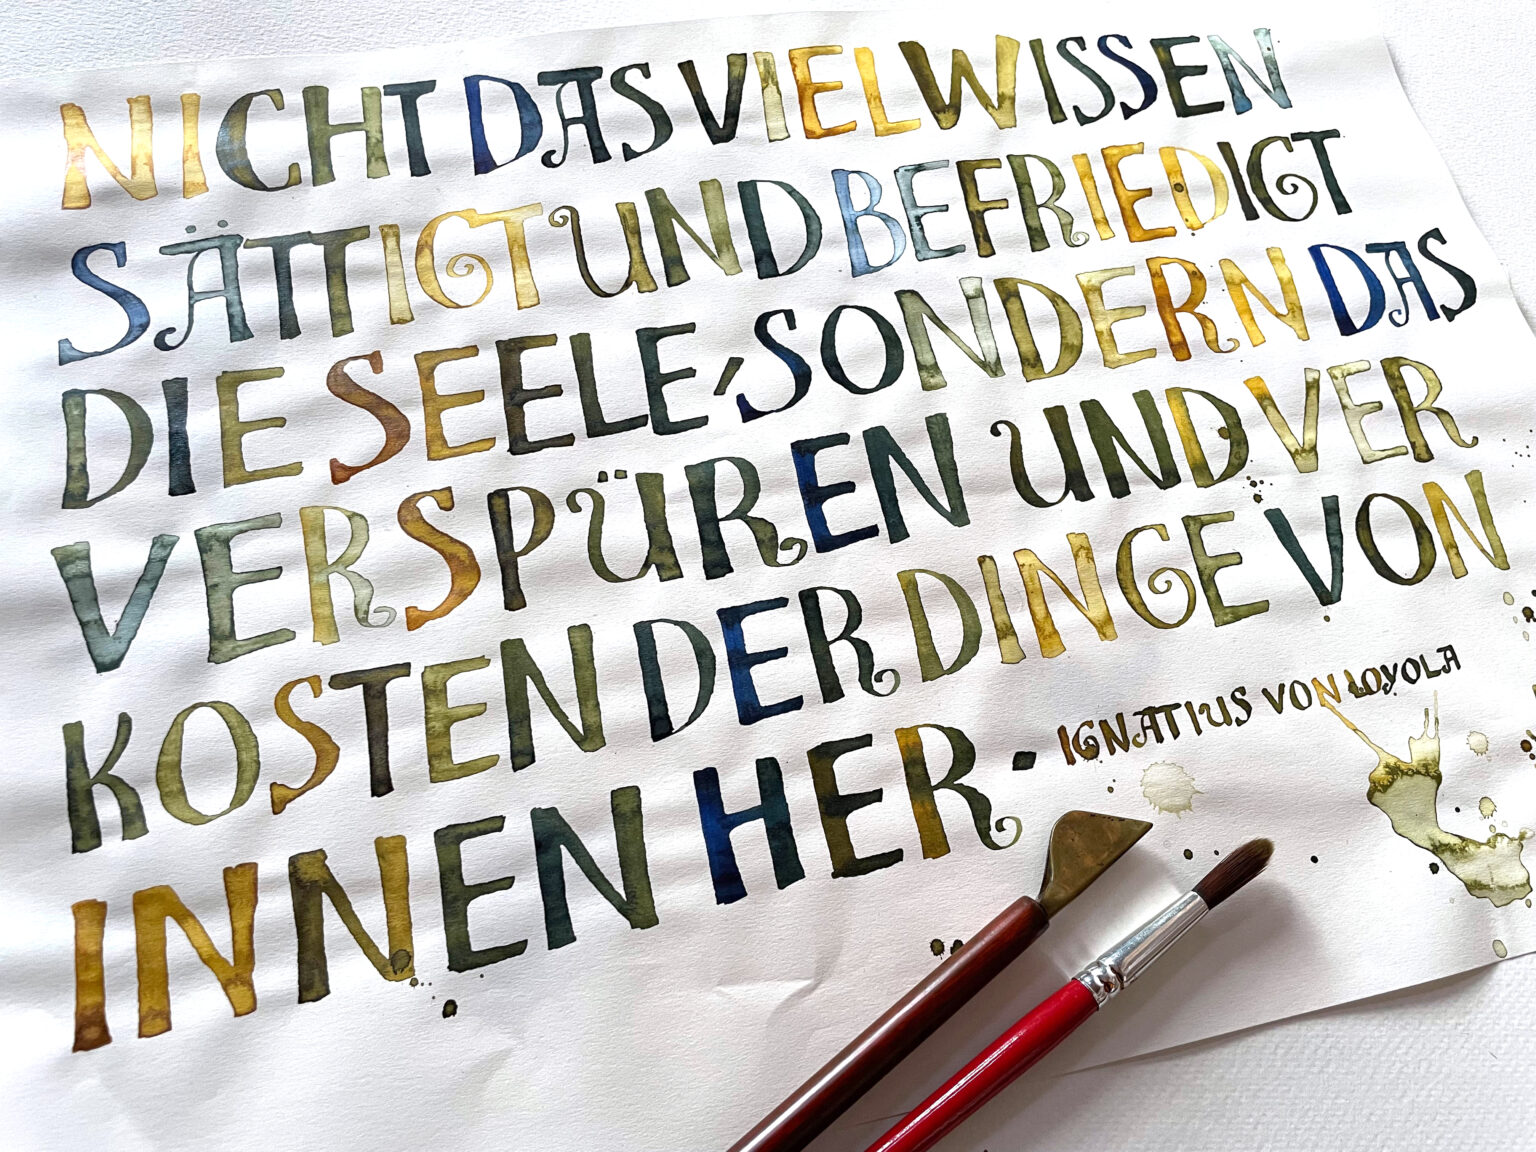 NICHT DAS VIEL WISSEN
SÄTTIGT UND BEFRIEDIGT
DIE SEELE, SONDERN DAS
VERSPÜREN UND VER
KOSTEN DER DINGE VON
INNEN HER.
IGNATIUS VON LOYOLA